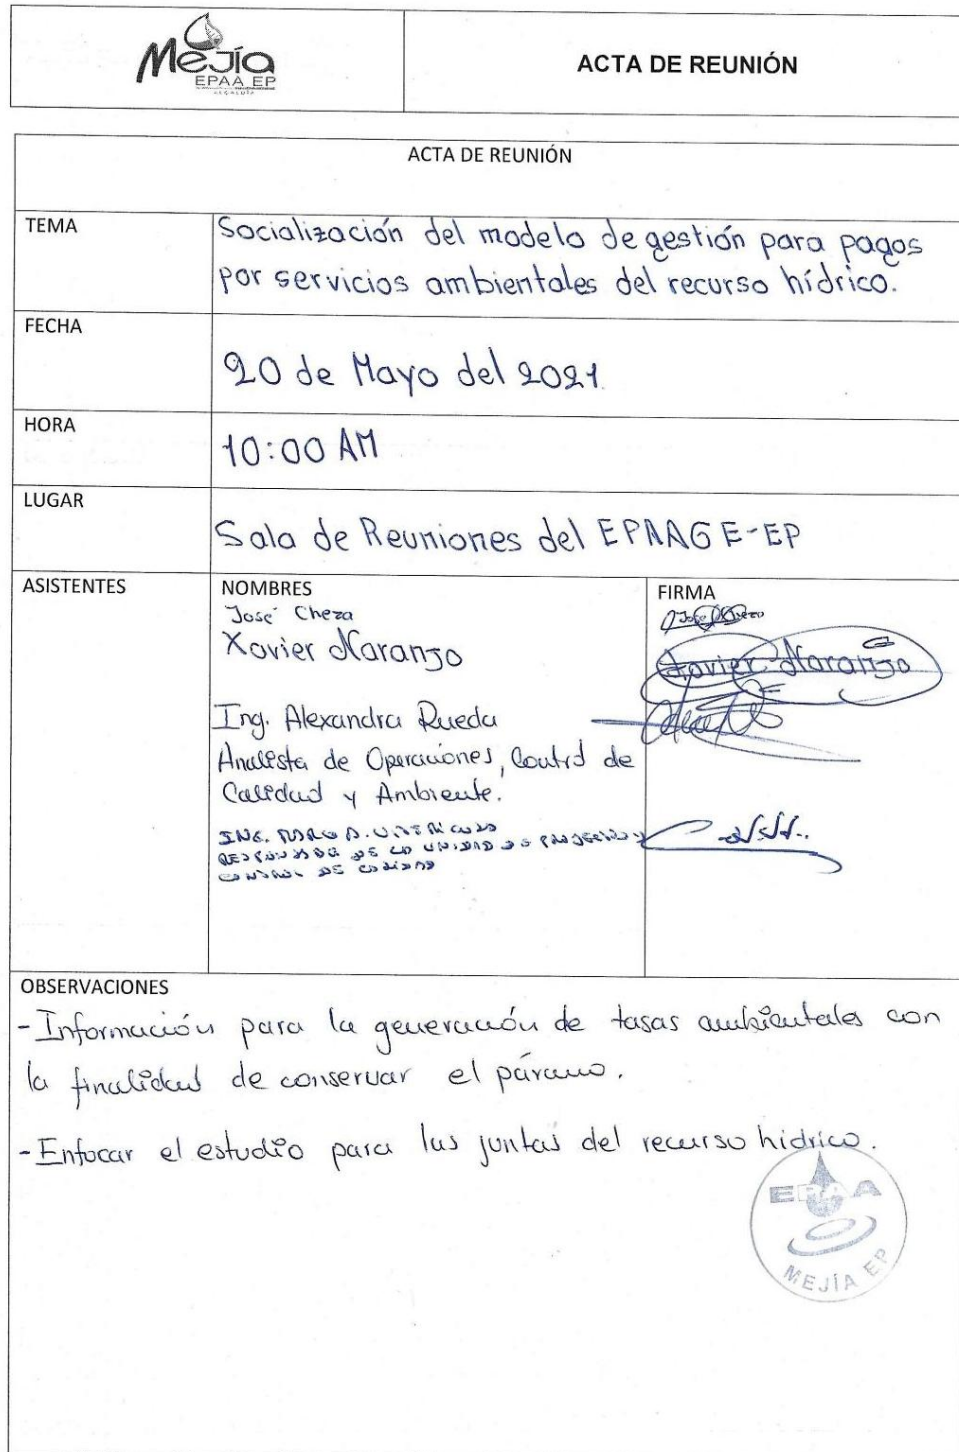 Mejía
EPAA EP
ALCALDÍA
ACTA DE REUNIÓN
ACTA DE REUNIÓN
TEMA
Socialización del modelo de gestión para pagos
por servicios ambientales del recurso hídrico.
FECHA
20 de Mayo del 2021
HORA
10:00 AM
LUGAR
Sala de Reuniones del EPAAGE-EP
ASISTENTES
NOMBRES
FIRMA
José Cheza
Xavier Naranjo
Xavier Naranjo
Ing. Alexandra Rueda
Analista de Operaciones, Control de
Calidad y Ambiente.
ING.
DE LA UNIDAD DE Y
CONTROL DE CALIDAD
OBSERVACIONES
- Información para la generación de tasas ambientales con
la finalidad de conservar el páramo.
- Enfocar el estudio para las juntas del recurso hídrico.
EPAA
MEJÍA EP